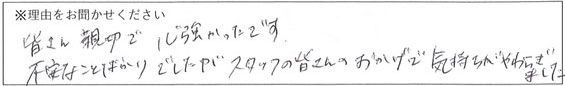 ※理由をお聞かせください
皆さん親切で心強かったです
不安なことばかりでしたがスタッフの皆さんのおかげで気持ちがやわらぎました